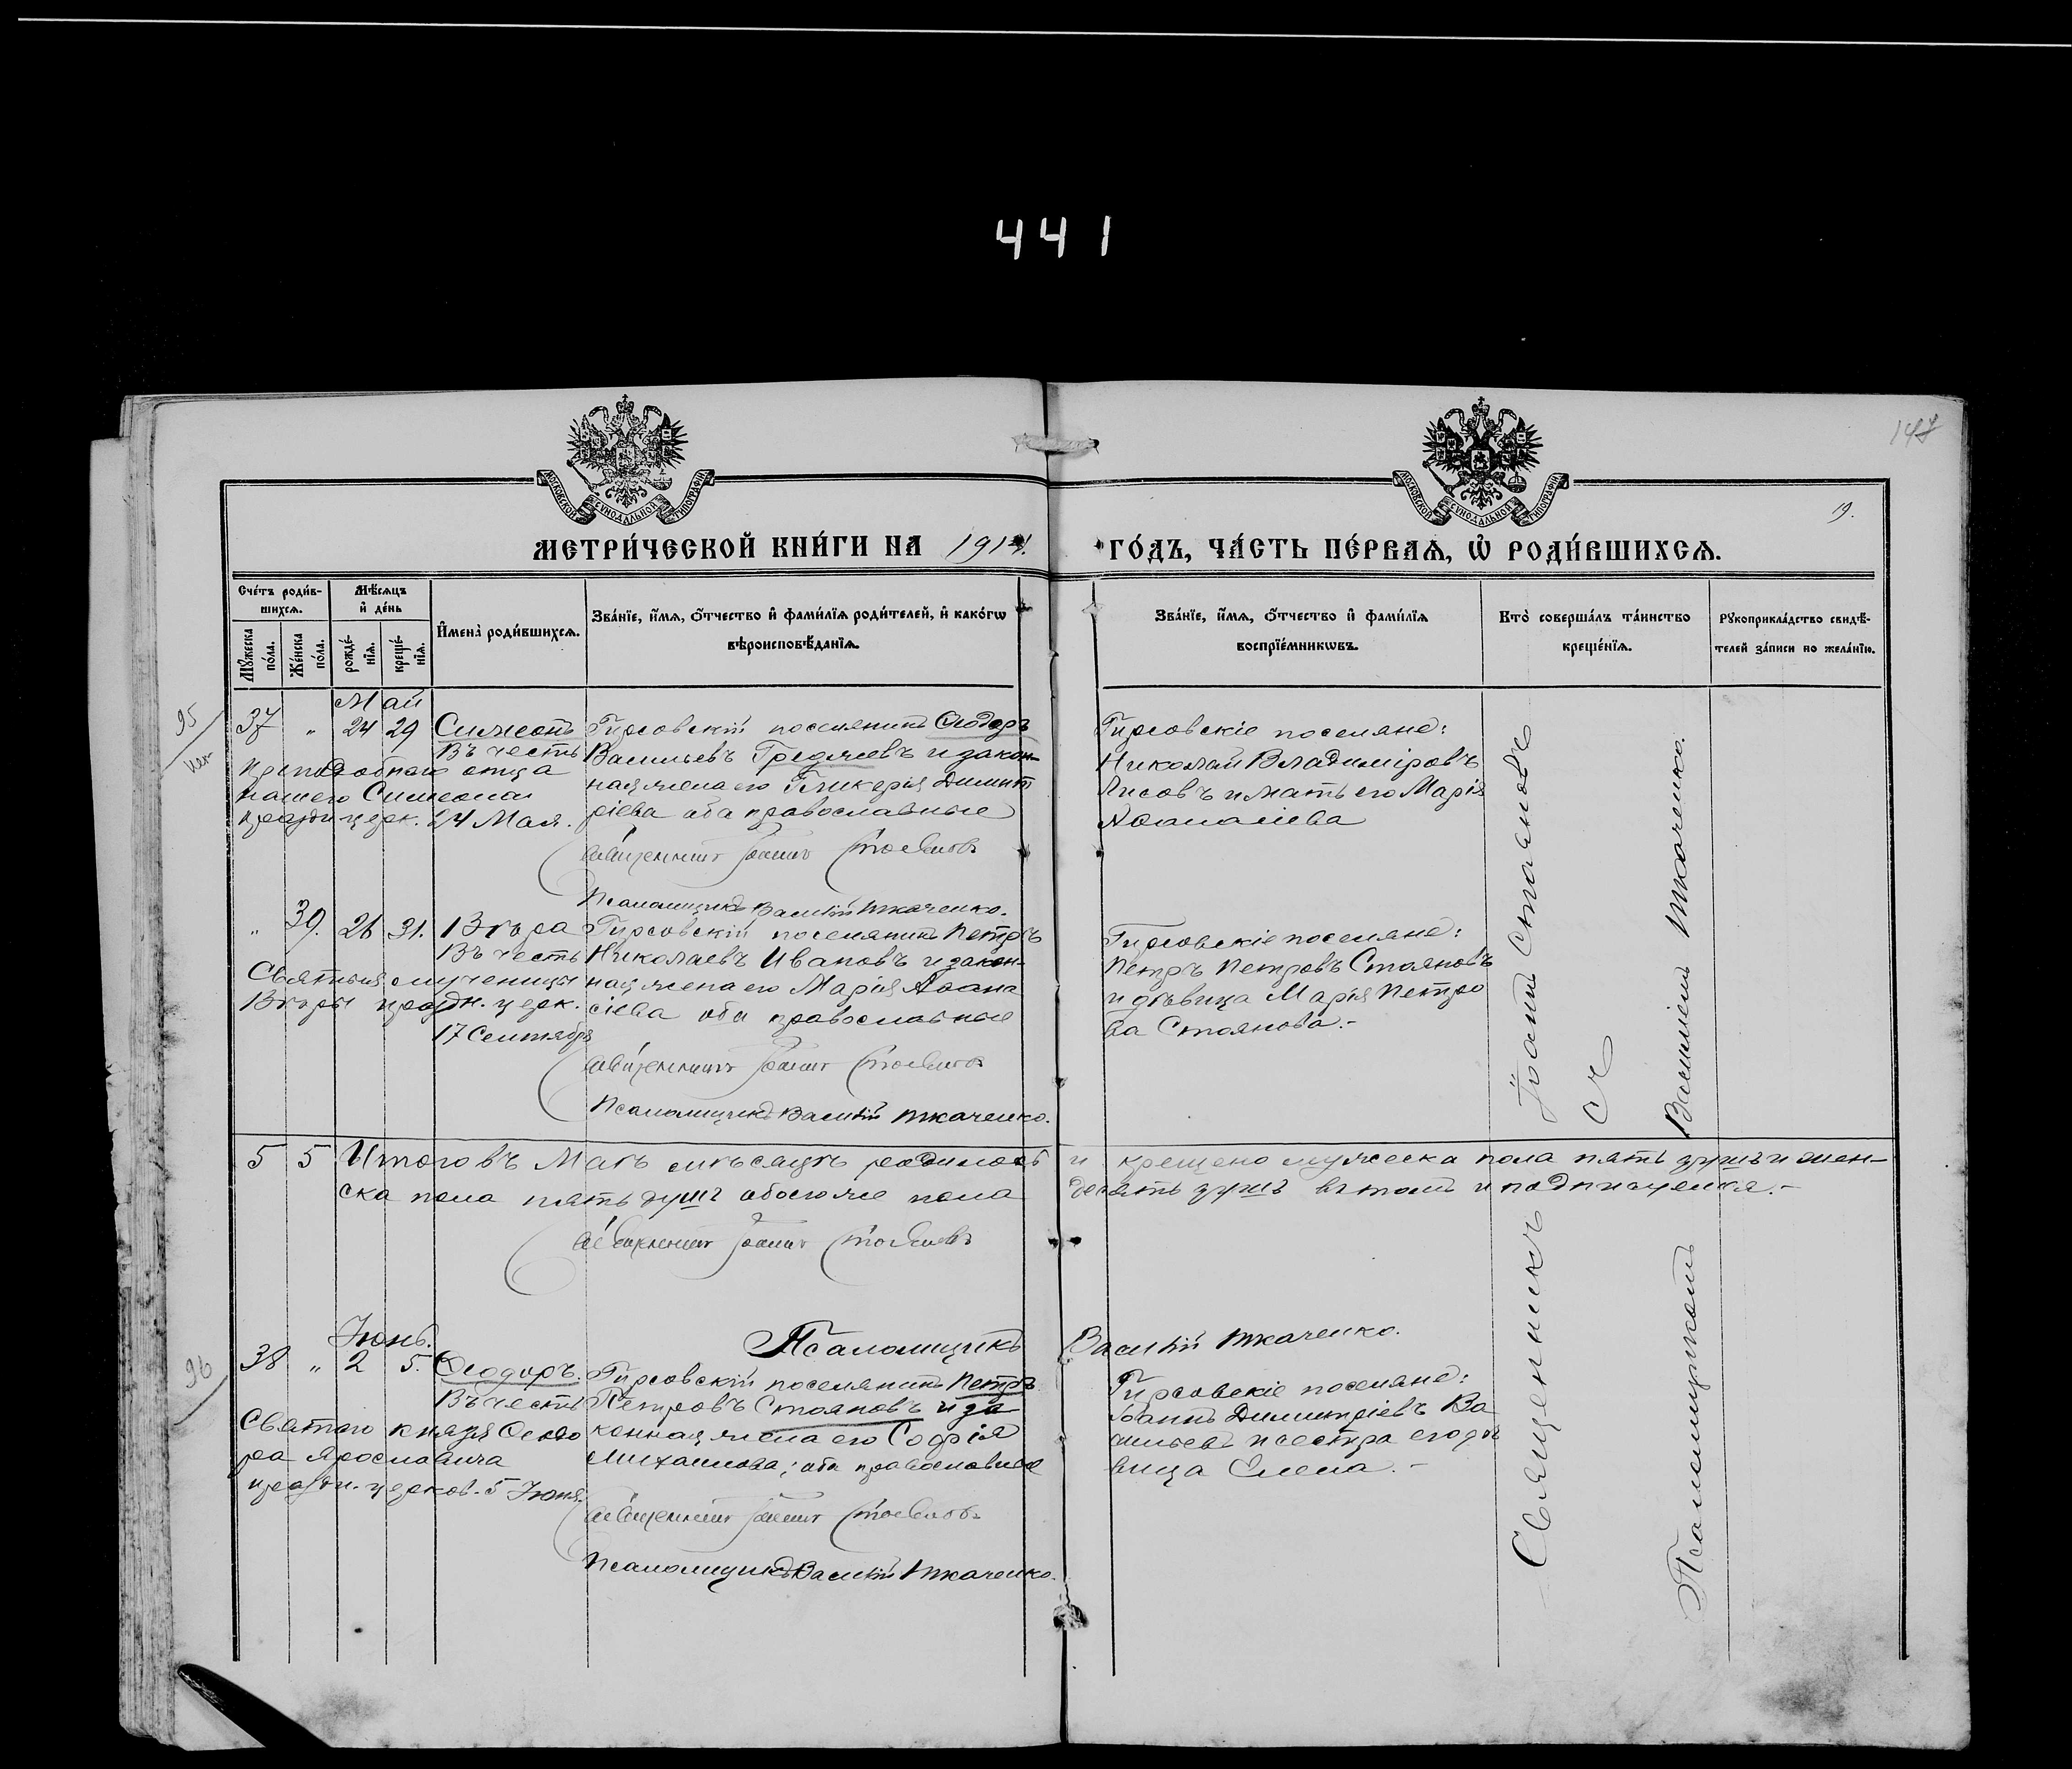 441
147
19.
МОСКОВСКОЙ СУНОДАЛЬНОЙ ТИПОГРАФІИ
МОСКОВСКОЙ СУНОДАЛЬНОЙ ТИПОГРАФІИ
МЕТРИ́ЧЕСКОЙ КНИ́ГИ НА 1914. ГО́ДЪ, ЧА́СТЬ ПЕ́РВАѦ, Ѽ РОДИ́ВШИХСѦ.
Сче́тъ роди́в-
шихсѧ.
Мꙋ́жеска по́ла.
Же́нска по́ла.
Мѣ́сѧцъ
и҆ де́нь
рожде́-
нїѧ.
креще́-
нїѧ.
И҆мена̀ роди́вшихсѧ.
Зва́нїе, и҆́мѧ, ѻ҆́тчество и҆ фами́лїѧ роди́телей, и҆ како́гѡ
вѣроисповѣ́данїѧ.
Зва́нїе, и҆́мѧ, ѻ҆́тчество и҆ фами́лїѧ
воспрїе́мникѡвъ.
Кто̀ соверша́лъ та́инство
креще́нїѧ.
Рꙋкоприкла́дство свидѣ́-
телей за́писи по жела́нїю.
Май
95
37 " 24 29 Симеонъ
Въ честь
преподобнаго отца
нашего Симеона
праздн. церк. 24 Мая.
Гирсовскій поселянинъ Ѳеодоръ
Васильевъ Греджевъ и закон-
ная жена его Гликерія Димит
ріева оба православные
Священникъ Іоаннъ Стояновъ
Псаломщикъ Василій Ткаченко.
Гирсовскіе поселяне:
Николай Владиміровъ
Лисовъ и мать его Марія
Аѳанасіева
" 39. 26 31. Вѣра
Въ честь
Святыя мученицы
Вѣры праздн. церк.
17 Сентября
Гирсовскій поселянинъ Петръ
Николаевъ Ивановъ и закон-
ная жена его Марія Аѳана
сіева оба православные
Священникъ Іоаннъ Стояновъ
Псаломщикъ Василій Ткаченко.
Гирсовскіе поселяне:
Петръ Петровъ Стояновъ
и дѣвица Марія Петро
ва Стоянова.-
5 5 Итого въ Маѣ мѣсяцѣ родилось и крещено мужеска пола пять душъ и жен-
ска пола пять душъ обоего же пола десять душъ въ томъ и подписуемся.-
Священникъ Іоаннъ Стояновъ
Псаломщикъ Василій Ткаченко.
Іюнь.
96
38 " 2 5. Ѳеодоръ.
Въ честь
Святаго князя Ѳеодо
ра Ярославича
праздн. церков. 5 Іюня.
Гирсовскій поселянинъ Петръ
Петровъ Стояновъ и за
конная жена его Софія
Михаилова; оба православные
Священникъ Іоаннъ Стояновъ
Псаломщикъ Василій Ткаченко.
Гирсовскіе поселяне:
Іоаннъ Димитріевъ Ва
сильевъ и сестра его дѣ
вица Елена.-
Священникъ Іоаннъ Стояновъ
съ
Псаломщикомъ Василіемъ Ткаченко.